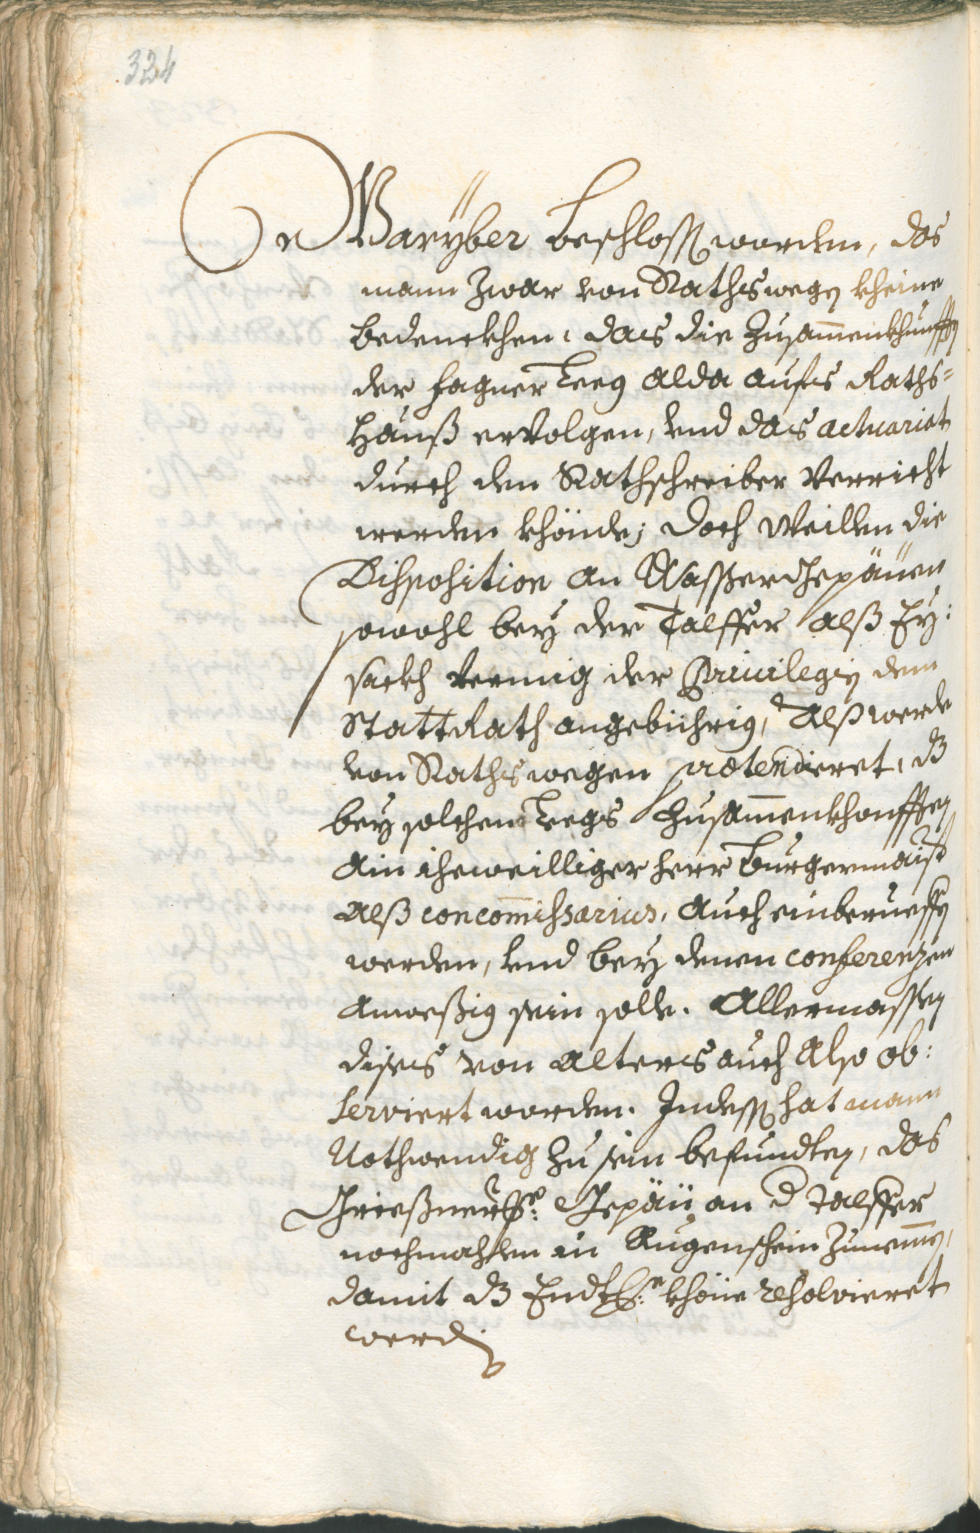 324
Warÿber beschloss worden, das
mann Zwar von Rathswegen kheine
bedenckhen, das die Zusam̄enkhunfften
der fagner Leeg alda aufs Raths=
Hauß ervolgen, vnd das actuariat
durch den Rathschreiber Verricht
werden khönde; doch Weillen die
Disposition an Wasserchepäuen
sowohl bey der Talffer alß Ey:
sackh vermig der Privilegien dem
StattRath angebichrig, Alß werde
von Rathswegen prætendieret, dß
bey solchen Leegs Zusam̄enkhonfften
Ain iheweilliger herr Burgermaist
alß concom̄issarius, auch einberueffen
werden, vnd bey denen conferenzen
anweßig sein solle. Allermassen
dises von alters auch also ob:
serviert worden. Indess hat mann
Nothwendig zu sein befundten, das
Grießneris: Gepäü an d Talffer
nochmahlen in Augenschein zunem̄en,
damit dß Endtl: khöne resolvieret
werden